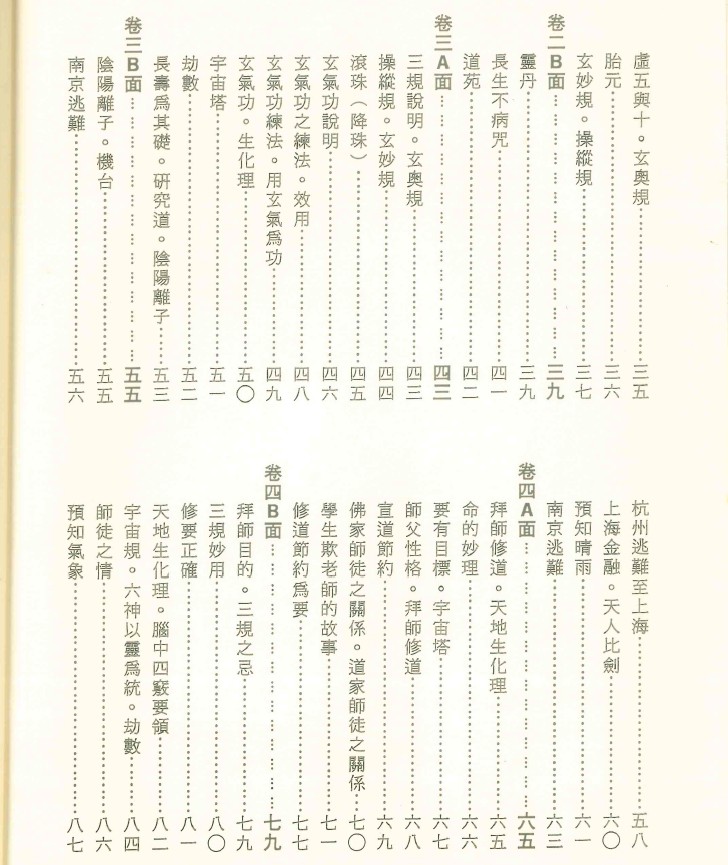 虛五與十。玄奧規……三五
胎元……三六
玄妙規。操縱規……三七
卷二B面……三九
靈丹……三九
長生不病咒……四一
道苑……四二
卷三A面……四三
三規說明。玄奧規……四三
操縱規。玄妙規……四四
滾珠（降珠）……四五
玄氣功說明……四六
玄氣功之練法。效用……四八
玄氣功練法。用玄氣爲功……四九
玄氣功。生化理……五〇
宇宙塔……五一
劫數……五二
長壽爲其礎。研究道。陰陽離子……五三
卷三B面……五五
陰陽離子。機台……五五
南京逃難……五六
杭州逃難至上海……五八
上海金融。天人比劍……六〇
預知晴雨……六一
南京逃難……六三
卷四A面……六五
拜師修道。天地生化理……六五
命的妙理……六六
要有目標。宇宙塔……六七
師父性格。拜師修道……六八
宣道節約……六九
佛家師徒之關係。道家師徒之關係……七〇
學生欺老師的故事……七一
修道節約爲要……七七
卷四B面……七九
拜師目的。三規之忌……七九
三規妙用……八〇
修要正確……八一
天地生化理。腦中四竅要領……八二
宇宙規。六神以靈爲統。劫數……八四
師徒之情……八六
預知氣象……八七